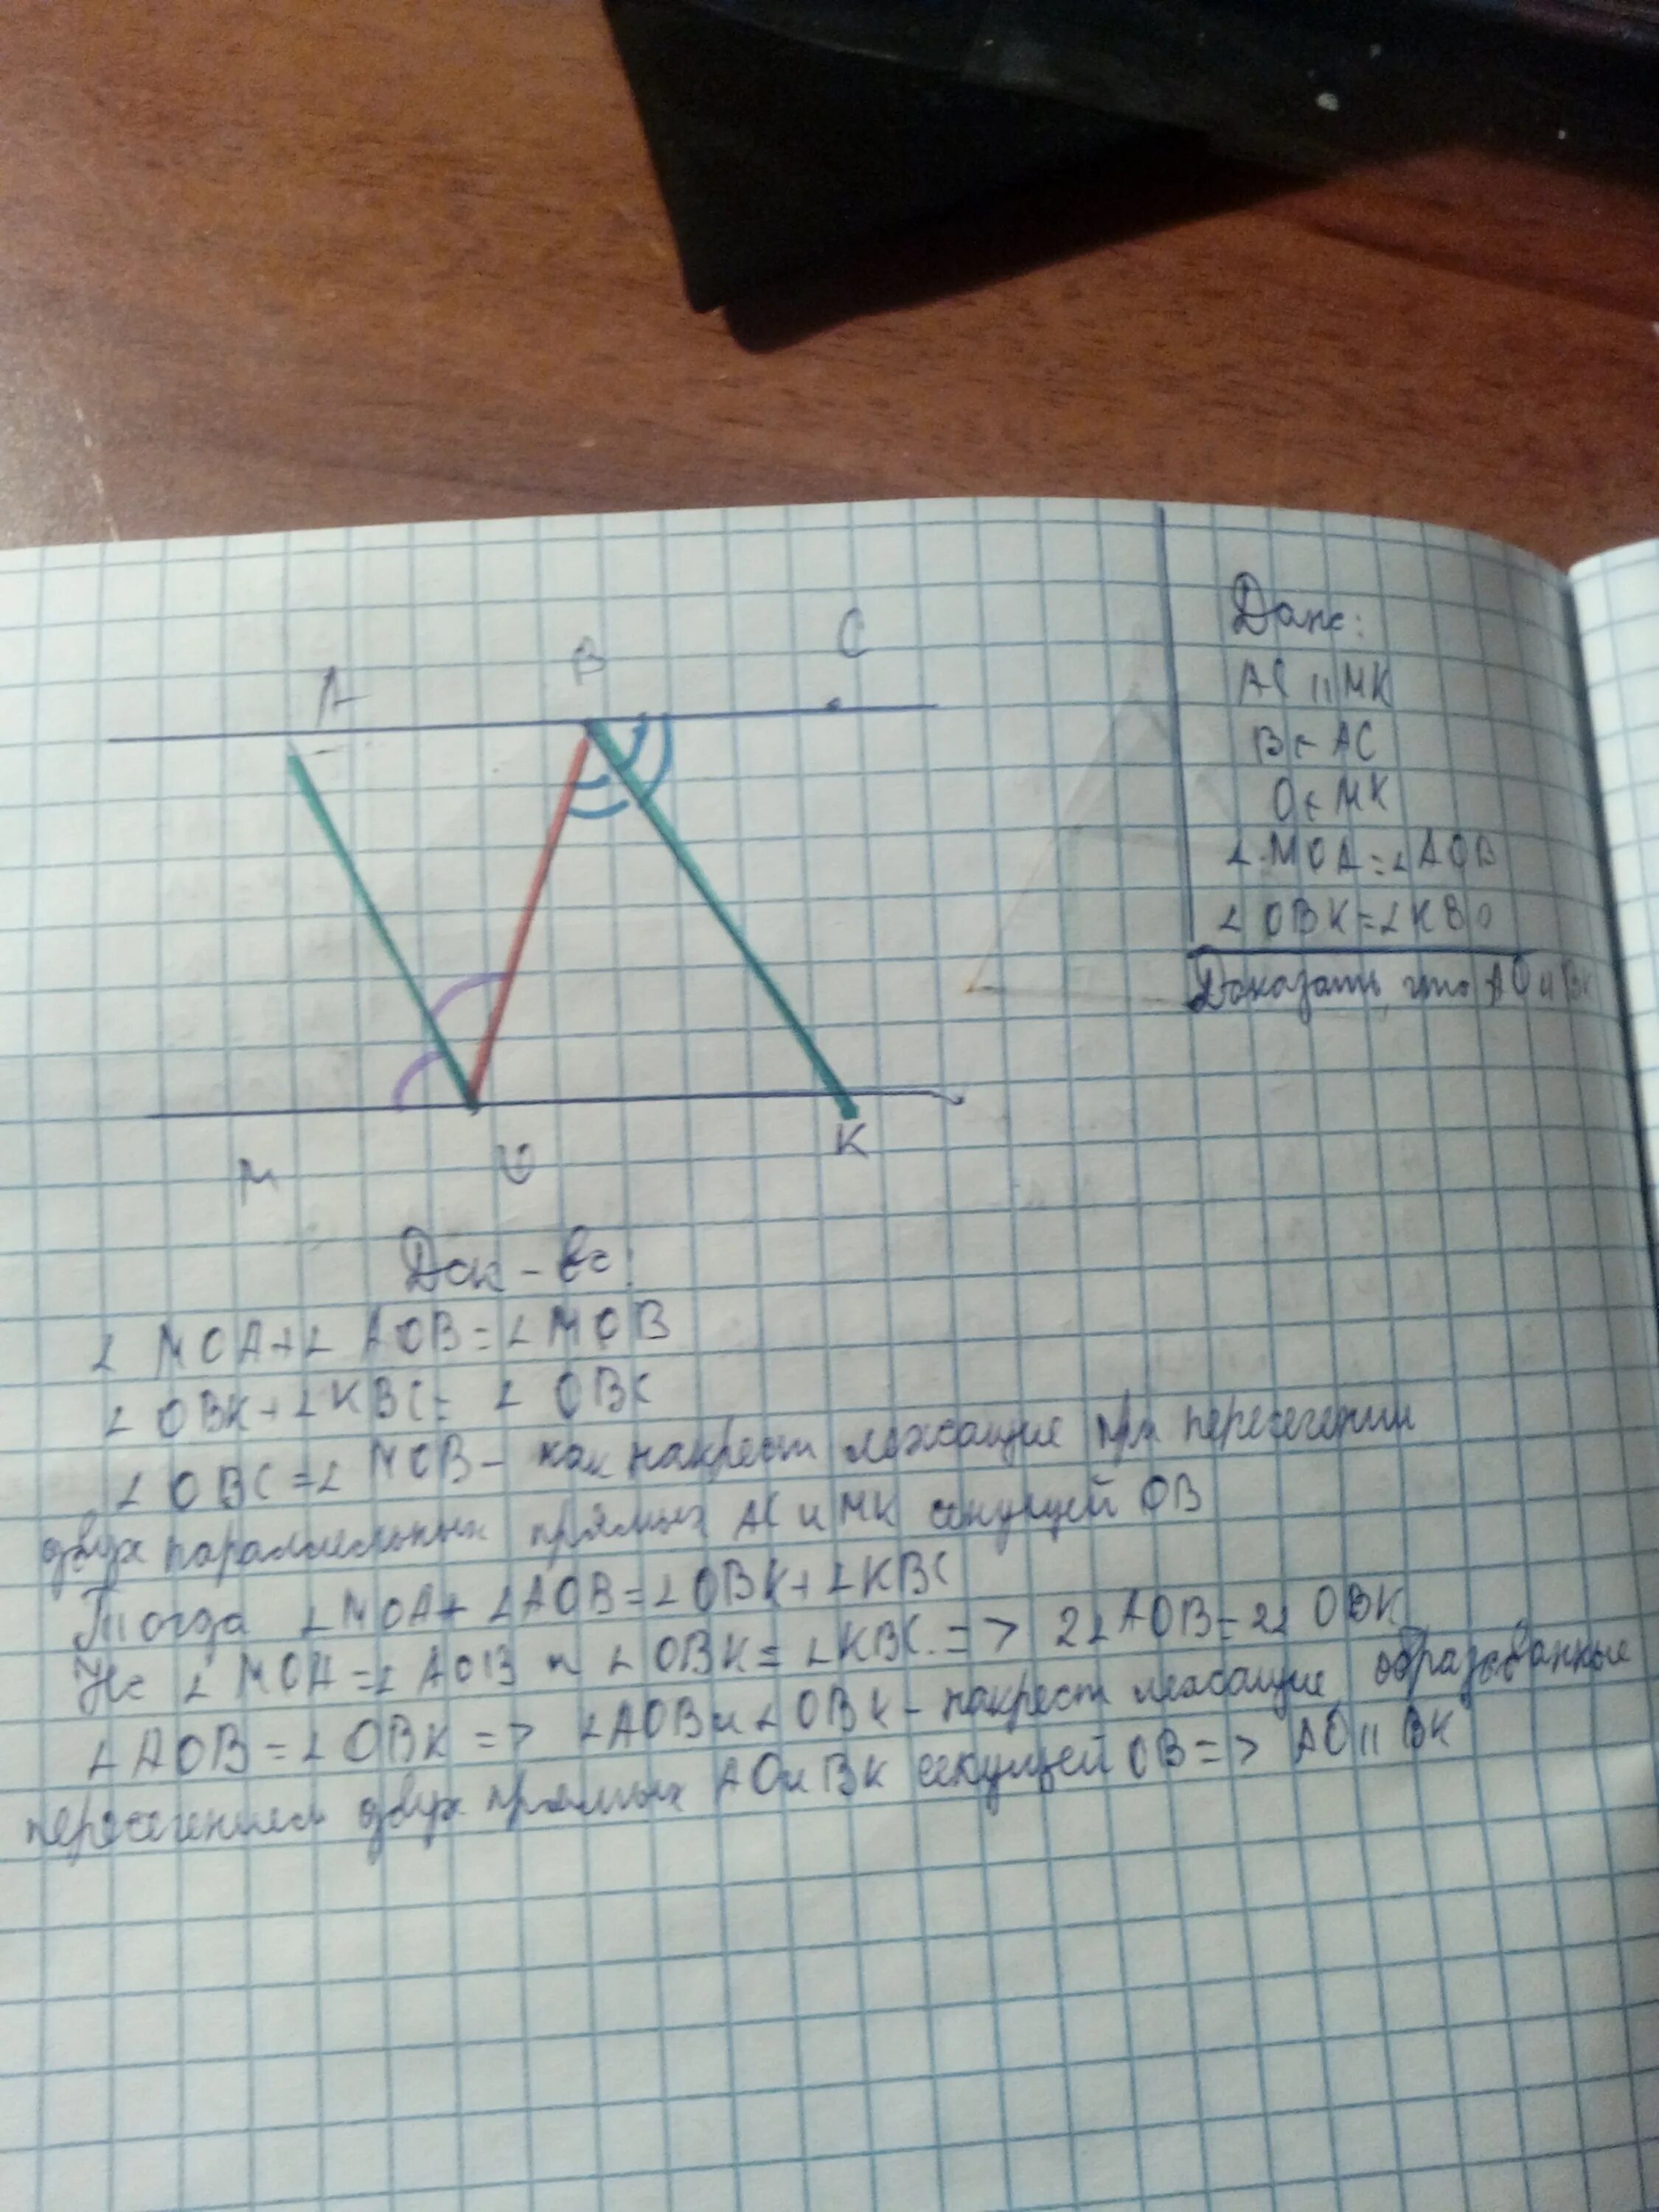 A
B
C
M
O
K
Дано:
AC || MK
B ∈ AC
O ∈ MK
∠ MOA = ∠ AOB
∠ OBK = ∠ KB
Доказать, что AO || BK
Док-во:
∠ MOA + ∠ AOB = ∠ MOB
∠ OBK + ∠ KBC = ∠ OBC
∠ OBC = ∠ MOB - как накрест лежащие при пересечении
двух параллельных прямых AC и MK секущей OB
Тогда ∠ MOA + ∠ AOB = ∠ OBK + ∠ KBC
Но ∠ MOA = ∠ AOB и ∠ OBK = ∠ KBC => 2∠ AOB = 2∠ OBK
∠ AOB = ∠ OBK => ∠ AOB и ∠ OBK - накрест лежащие, образованные
пересечением двух прямых AO и BK секущей OB => AO || BK